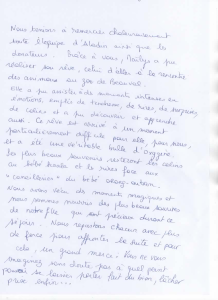 Nous tenions à remercier chaleureusement
toute l'équipe d'                ainsi que les
donateurs. Grâce à vous,           a pu
réaliser son rêve, celui d'aller à la rencontre
des animaux au zoo de Beauval.
Elle a pu assister à de moments intenses en
émotions,              de tendresse, de rires, de
de câlins et a pu découvrir et apprendre
aussi. Ce rêve est arrivé à un moment
particulièrement difficile pour elle, pour nous,
et a été une véritable bulle d'oxygène.
Les plus beaux souvenirs resteront les câlins
au bébé            et les rires face aux
"                " du bébé orang-outan.
Nous avons vécu de moments magiques et
nous sommes nourris des plus beaux sourires
de notre fille qui sont précieux durant ce
séjour. Nous repartons chacun avec plus
de force pour affronter la suite et pour
cela, un grand merci.            vous
imaginez sans doute pas à quel point
pouvoir se laisser porter fait du bien, lâcher
prise enfin...